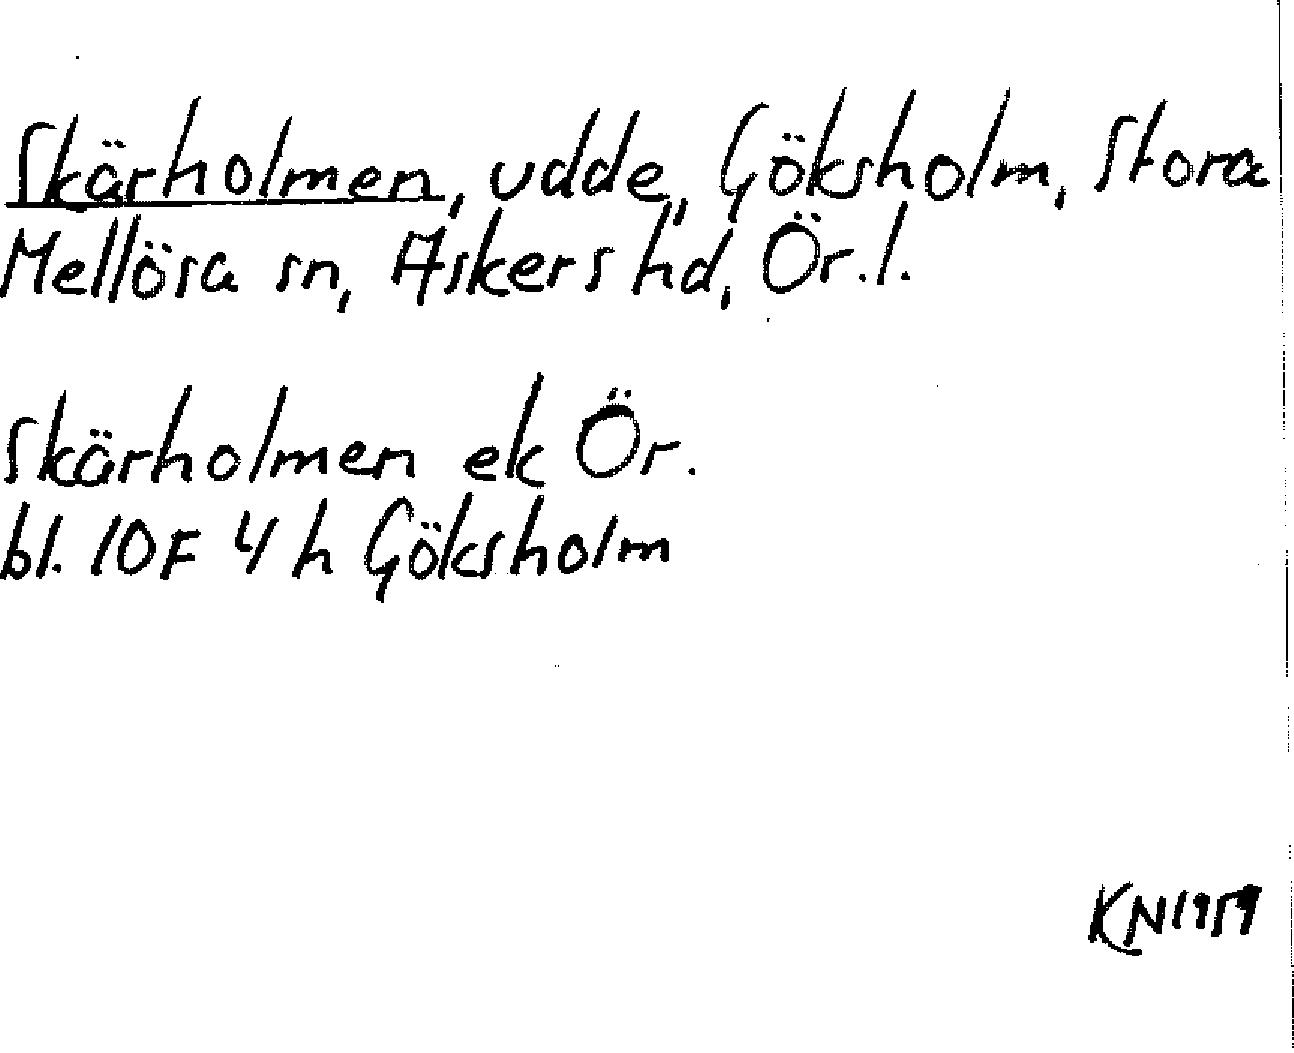 Skärholmen, udde, Göksholm, Stora
Mellösa sn, Askers hd, Ör. l.
Skärholmen ek Ör.
bl. 10F 4 h Göksholm
KN 1959